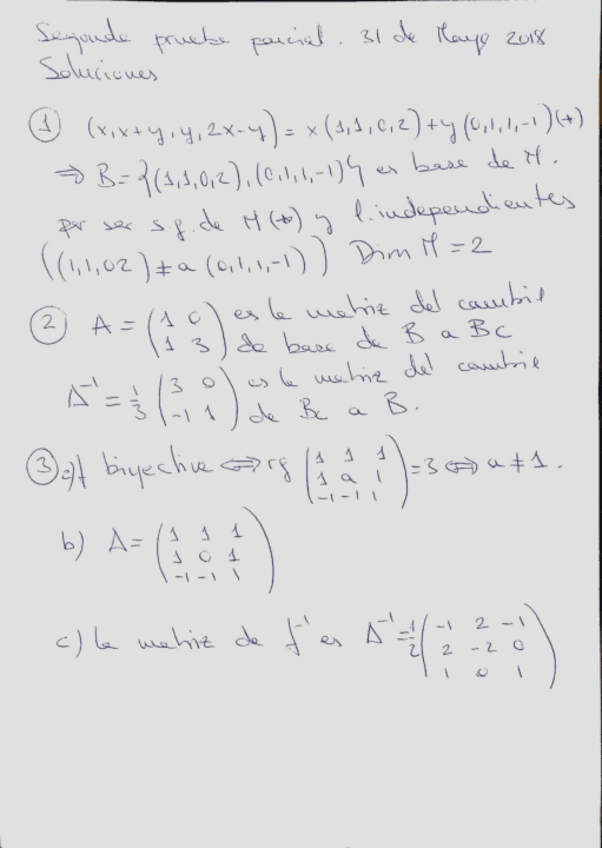 Segunda prueba parcial. 31 de Mayo 2018
Soluciones
① (x,x+y,y,2x-y) = x(1,1,0,2)+y(0,1,1,-1)(*)
⇒ B={(1,1,0,2),(0,1,1,-1)} es base de M.
por ser s.g. de M (*) y l.independientes
((1,1,02) ≠ a (0,1,1,-1)) Dim M = 2
② A = (1 0 / 1 3) es la matriz del cambio
de base de B a Bc
A⁻¹ = 1/3 (3 0 / -1 1) es la matriz del cambio
de Bc a B.
③ a) f biyectiva ⇔ rg (1 1 1 / 1 a 1 / -1 -1 1) = 3 ⇔ a ≠ 1.
b) A = (1 1 1 / 1 0 1 / -1 -1 1)
c) la matriz de f⁻¹ es A⁻¹ = 1/2 (-1 2 -1 / 2 -2 0 / 1 0 1)